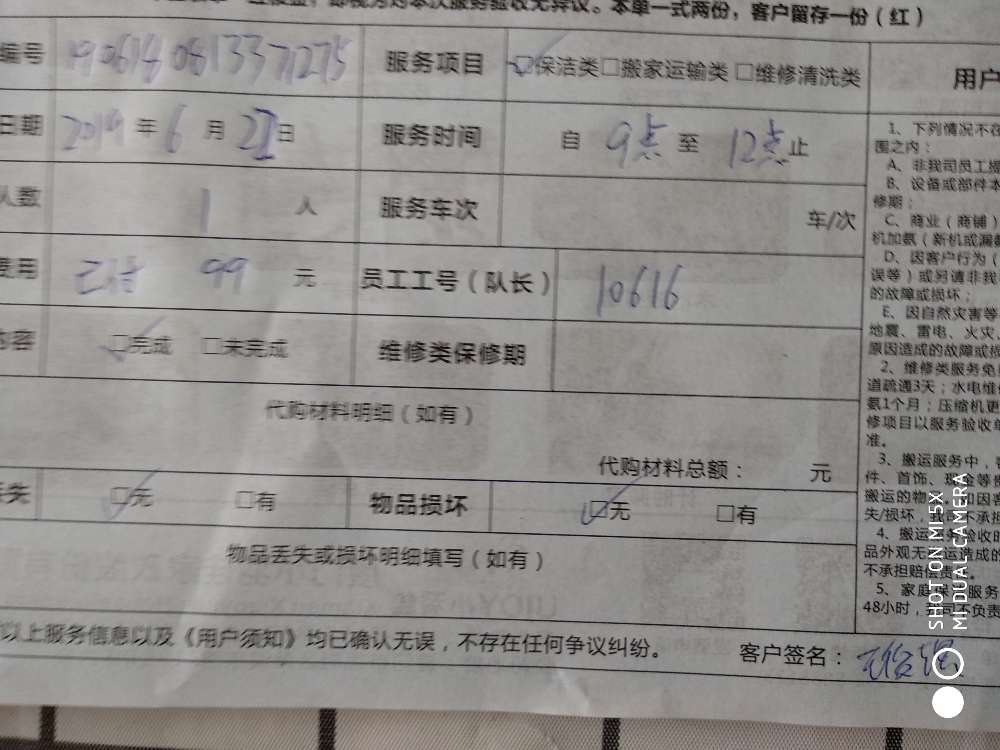 本单一式两份，客户留存一份（红）
编号 190618081337275 服务项目 保洁类 搬家运输类 维修清洗类
日期 2019 年 6 月 22 日 服务时间 自 9点 至 12点 止
人数 1 人 服务车次 车/次
费用 已结 99 元 员工工号（队长） 10616
内容 完成 未完成 维修类保修期
代购材料明细（如有）
代购材料总额： 元
丢失 无 有 物品损坏 无 有
物品丢失或损坏明细填写（如有）
以上服务信息以及《用户须知》均已确认无误，不存在任何争议纠纷。 客户签名：
用户
1、下列情况不在
围之内：
A、非我司员工
B、设备或部件本
修期；
C、商业（商铺）
机加氨（新机或漏
D、因客户行为（
误等）或另请非我
的故障或损坏；
E、因自然灾害等
地震、雷电、火灾
原因造成的故障或损
2、维修类服务免
道疏通3天；水电维
氨1个月；压缩机更
修项目以服务验收单
准。
3、搬运服务中，
件、首饰、现金等
搬运的物品，如因客
失/损坏，我司不承担
4、搬运服务验收时
品外观无搬运造成的
不承担赔偿责任。
5、家庭保洁服务
48小时，我司不负责
SHOT ON MI 5X
MI DUAL CAMERA